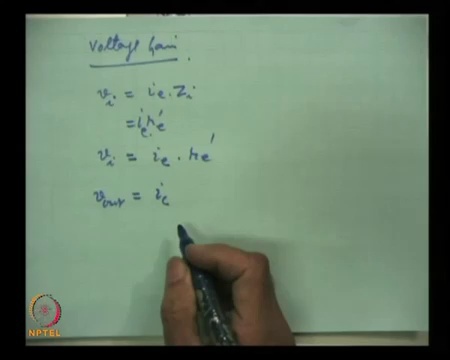 Voltage Gain.
v_i = i_e . Z_i
= i_e . r_e'
v_i = i_e . r_e'
v_out = i_c
NPTEL